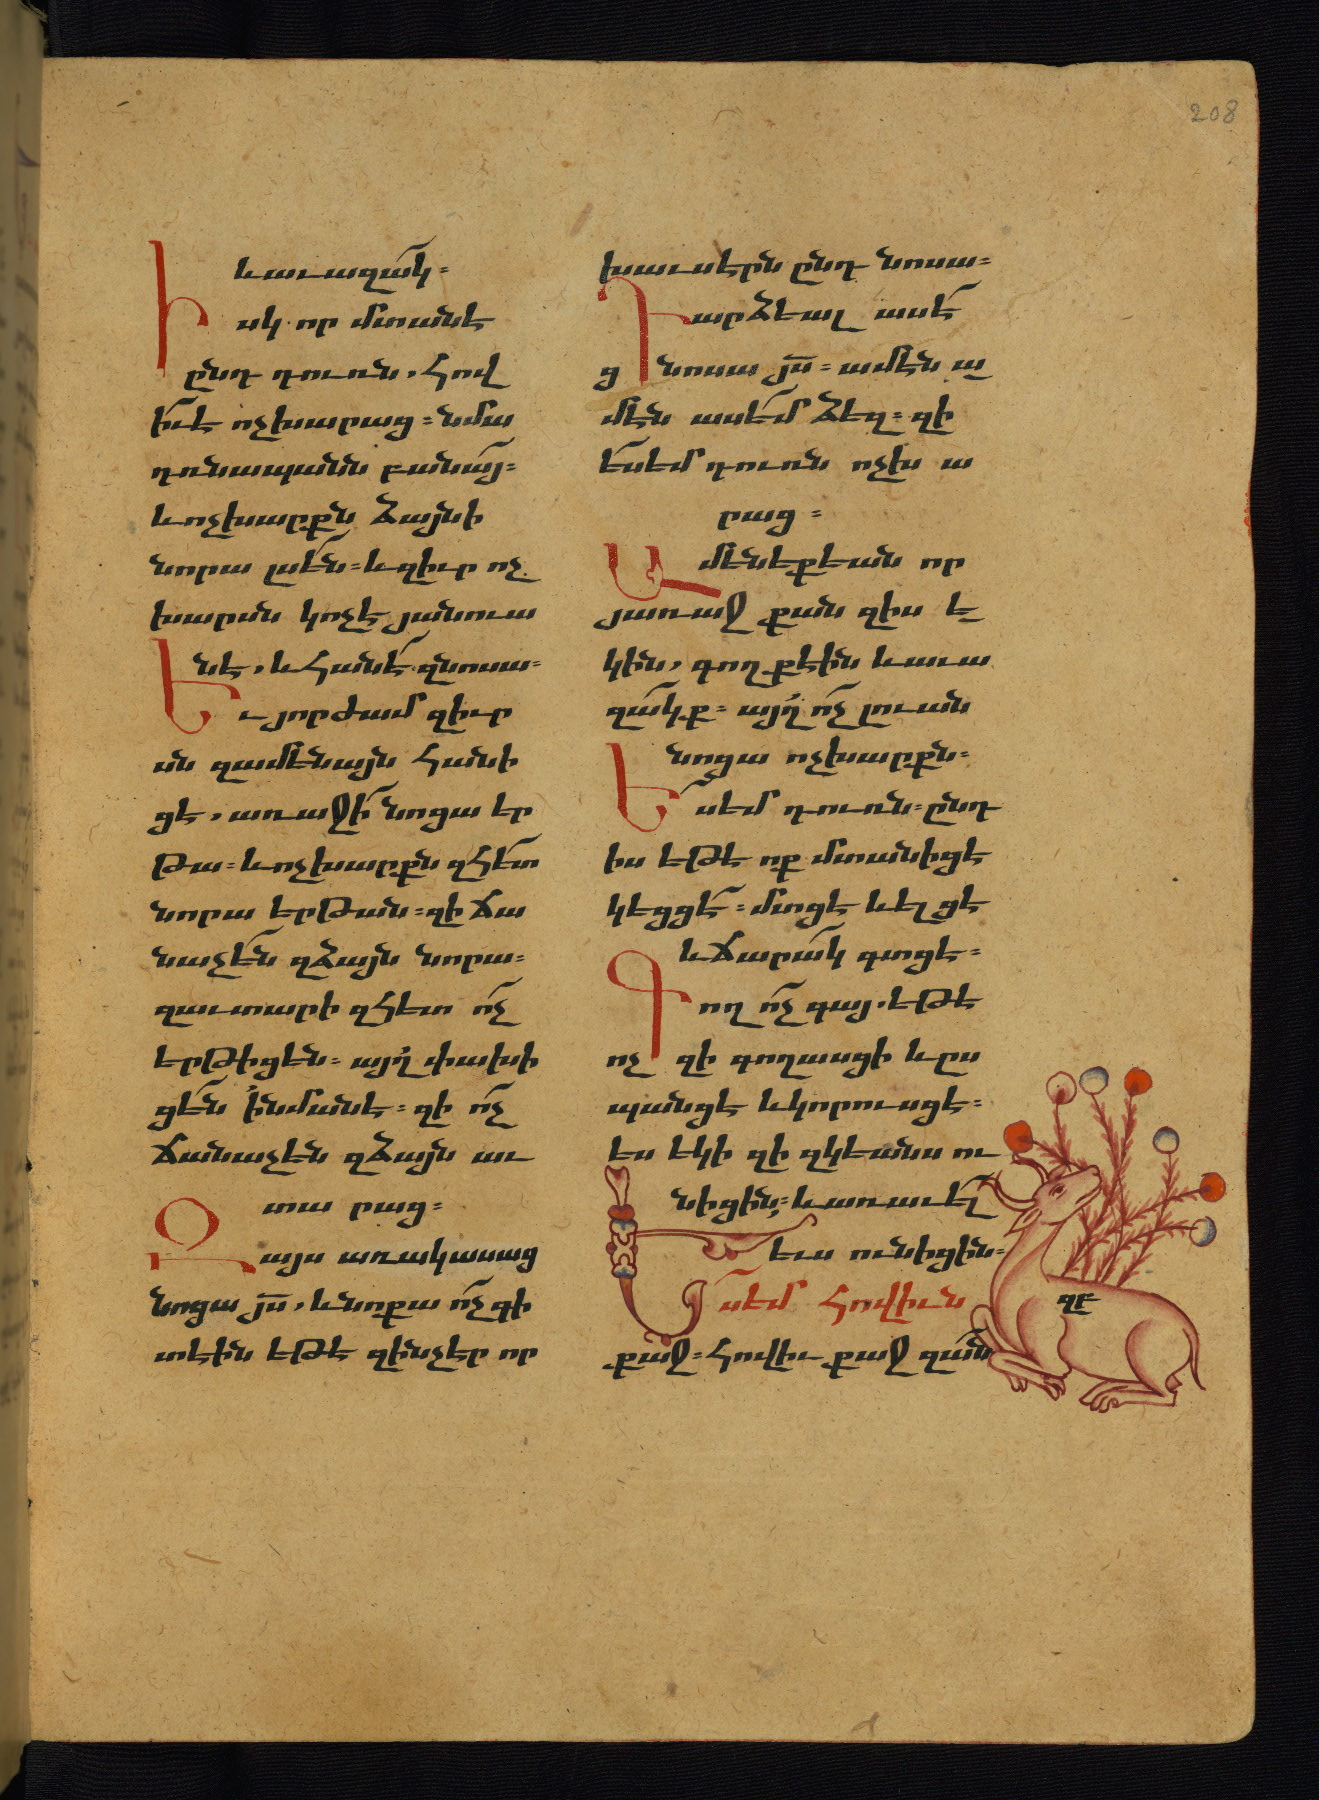 208
ևաւազակ։
Իսկ որ մտանէ
ընդ դուռն, հով
իւէ ոչխարաց։ նմա
դռնապանն բանայ։
և ոչխարքն ձայնի
նորա լսեն։ և զիւր ոչ
խարսն կոչէ յանուա
նէ, և հանէ զնոսա։
Եւ յորժամ զիւր
սն զամենայն հանի
ցէ, առաջի նոցա եր
թա։ և ոչխարքն զհետ
նորա երթան։ զի ճա
նաչեն զձայն նորա։
զաւտարի զհետ ոչ
երթիցեն։ այղ փախի
ցեն ինմանէ։ զի ոչ
ճանաչեն զձայն աւ
տա րաց։
Զայս առակ ասաց
նոցա յս, և նոքա ոչ գի
տէին եթէ զինչ էր որ
խաւսէրն ընդ նոսա։
Դարձեալ ասէ
ց նոսա յս։ ամէն ա
մէն ասեմ ձեզ։ զի
ես եմ դուռն ոչխ ա
րաց։
Ամենեքեան որ
յառաջ քան զիս ե
կին, գողք էին և աւա
զակք։ այղ ոչ լուան
նոցա ոչխարքն։
Ես եմ դուռն։ ընդ
իս եթէ ոք մտանիցէ
կեցցէ։ մտցէ և ելցէ
և ճարակ գտցէ։
Գող ոչ գայ, եթէ
ոչ զի գողասցի և ըս
պանցէ և կորուսցէ։
ես եկի զի զկեանս ու
նիցին։ և առաւել
ևս ունիցին։
Ես եմ հովիւն
զբ
քաջ։ հովիւ քաջ զան